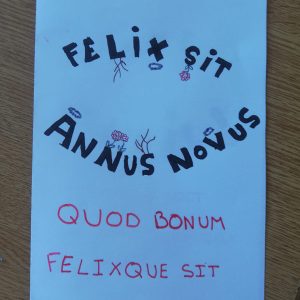 FELIX SIT
ANNUS NOVUS
QUOD BONUM
FELIXQUE SIT